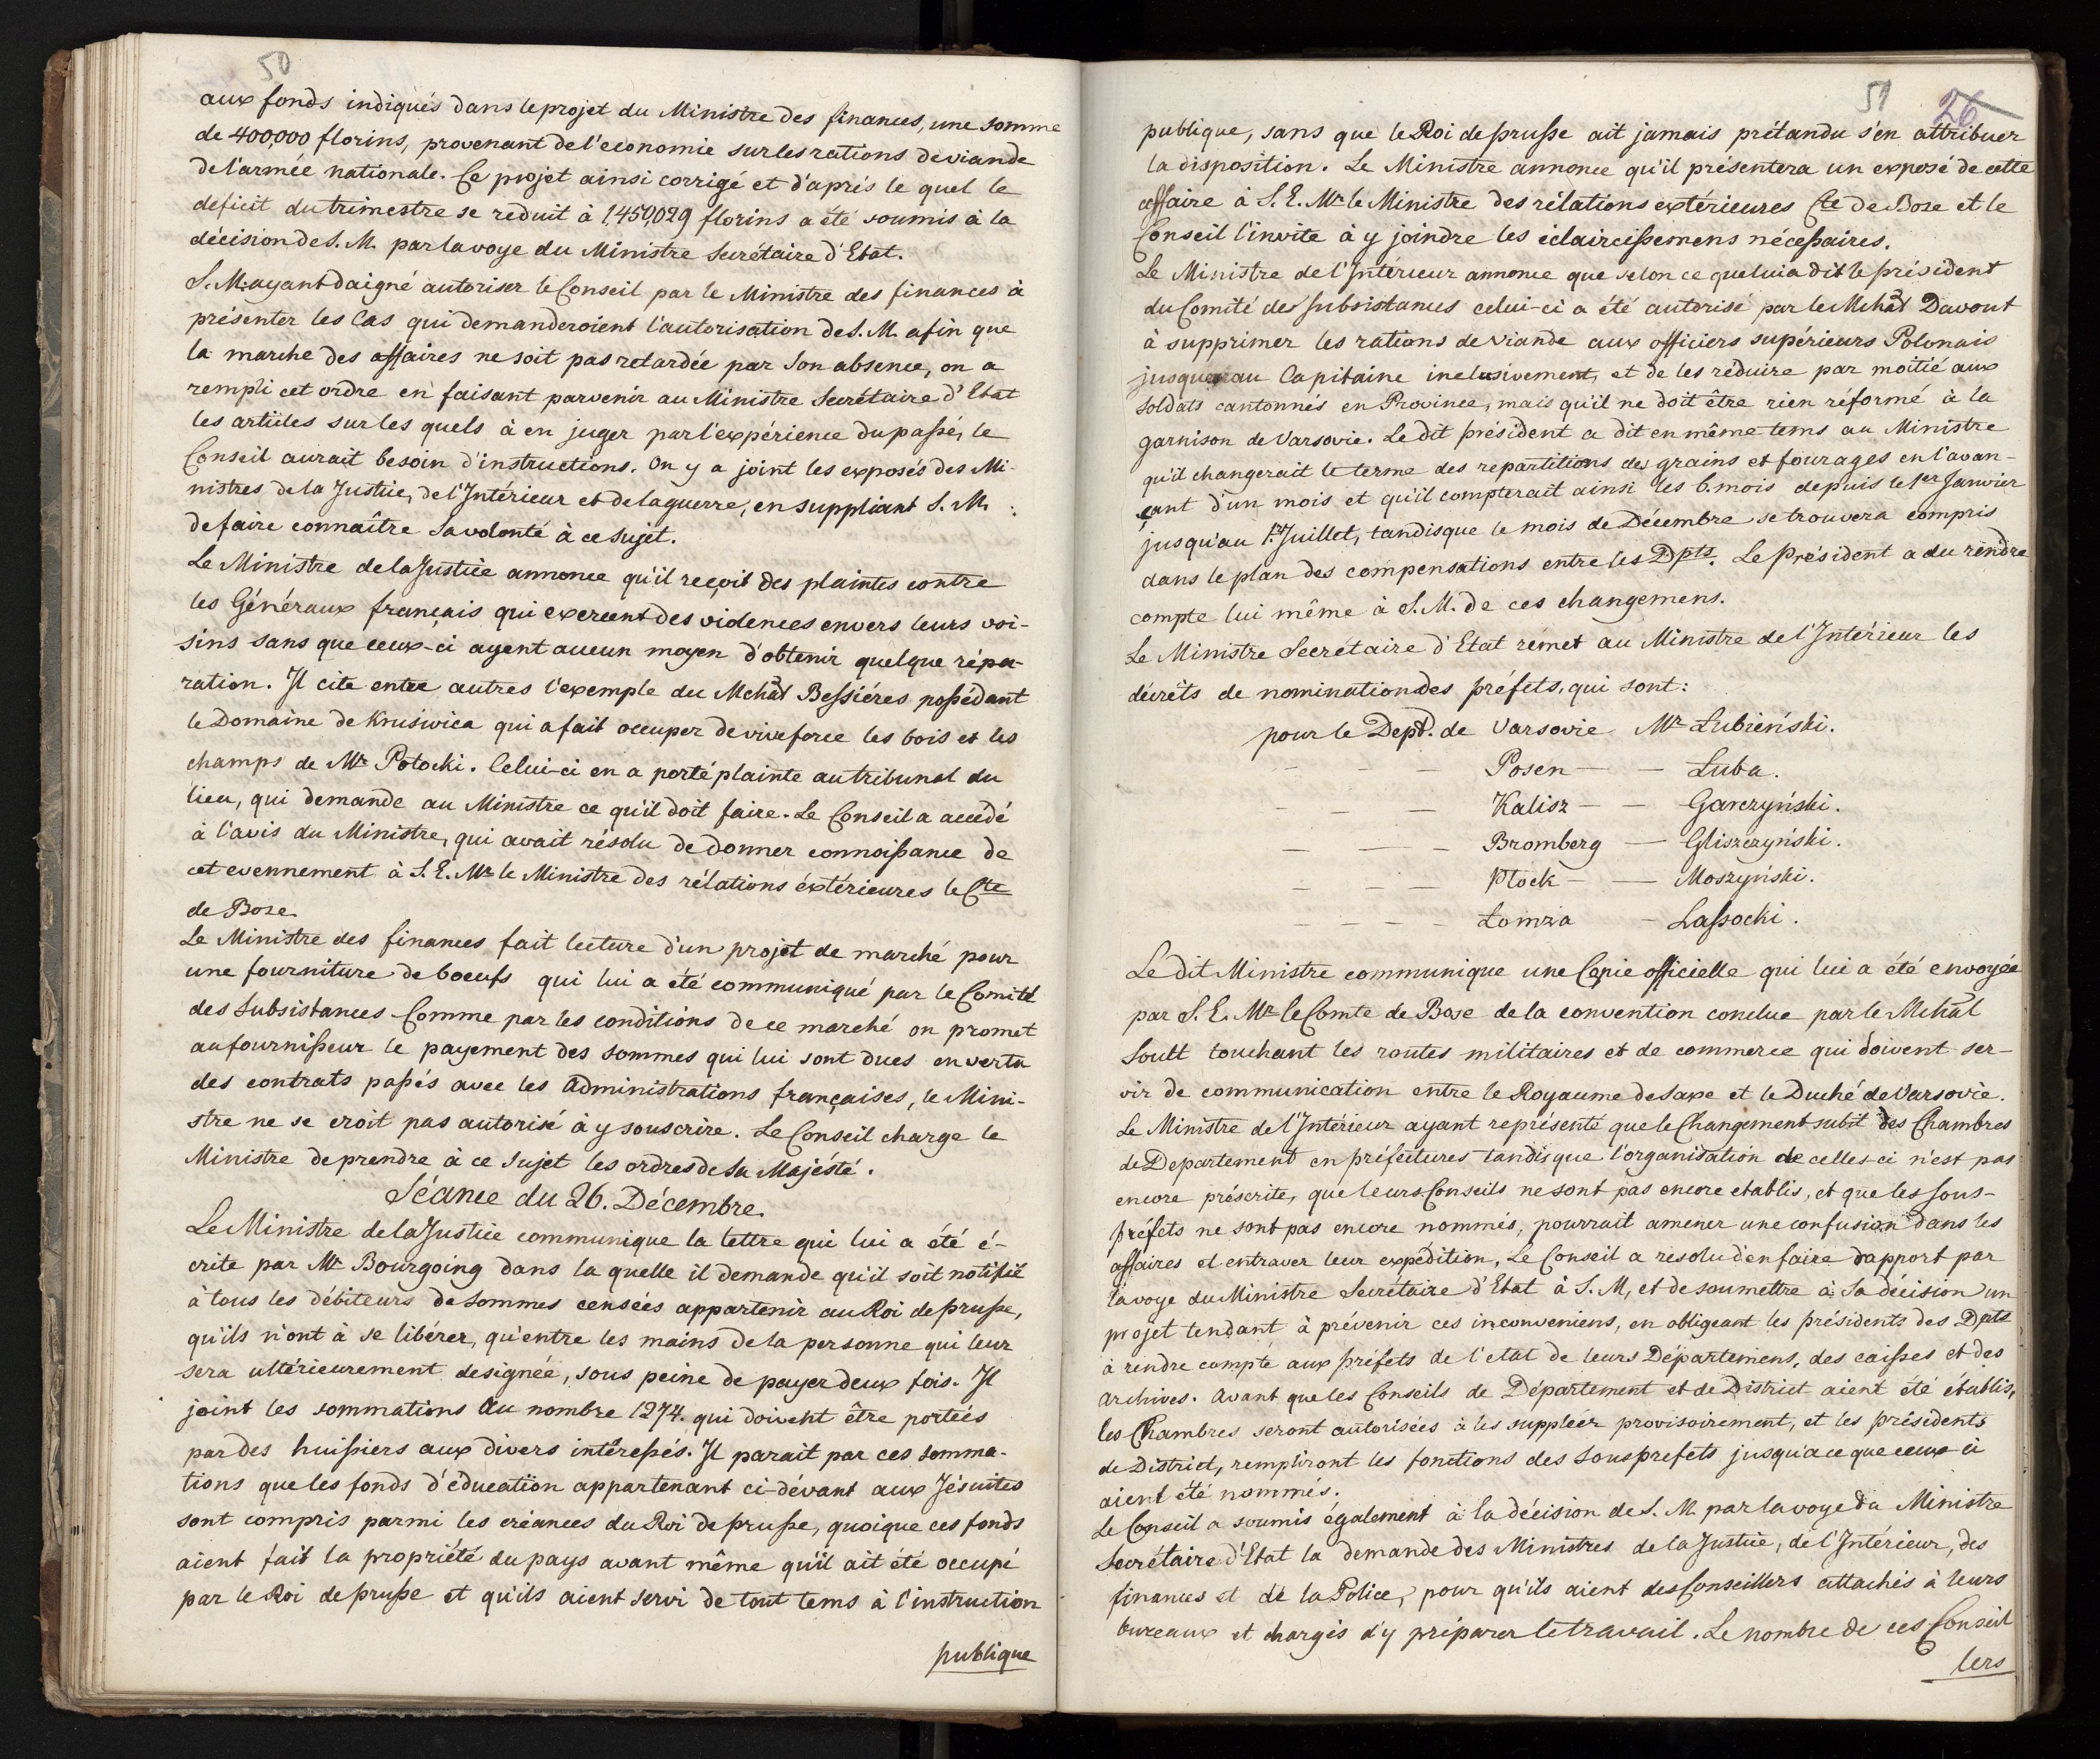 50
aux fonds indiqués dans le projet du Ministre des finances, une somme
de 400,000 florins, provenant de l'economie sur les rations de viande
de l'armée nationale. Ce projet ainsi corrigé et d'aprés le quel le
déficit du trimestre se reduit à 1,450,029 florins a été soumis à la
décision de S. M. par la voye du Ministre Secrétaire d'Etat.
S. M. ayant daigné autoriser le Conseil par le Ministre des finances à
présenter les Cas qui demanderoient l'autorisation de S. M. afin que
la marche des affaires ne soit pas retardée par Son absence, on a
rempli cet ordre en faisant parvenir au Ministre Secrétaire d'Etat
les articles sur les quels à en juger par l'expérience du passé, le
Conseil aurait besoin d'instructions. On y a joint les exposés des Mi-
nistres de la Justice, de l'Intérieur et de la guerre, en suppliant S. M.
de faire connaître Sa volonté à ce sujet.
Le Ministre de la Justice annonce qu'il reçoit des plaintes contre
les Généraux français qui exercent des violences envers leurs voi-
sins sans que ceux-ci ayent aucun moyen d'obtenir quelque répa-
ration. Il cite entre autres l'exemple du Mchal Bessiéres possédant
le Domaine de Kruświca qui a fait occuper de vive force les bois et les
champs de Mr Potocki. Celui-ci en a porté plainte au tribunal du
lieu, qui demande au Ministre ce qu'il doit faire. Le Conseil a accedé
à l'avis du Ministre, qui avait résolu de donner connoissance de
cet evennement à S. E. Mr le Ministre des rélations éxtérieures le Cte
de Bose.
Le Ministre des finances fait lecture d'un projet de marché pour
une fourniture de boeufs qui lui a été communiqué par le Comité
des Subsistances Comme par les conditions de ce marché on promet
au fournisseur le payement des sommes qui lui sont dues en vertu
des contrats passés avec les administrations françaises, le Mini-
stre ne se croit pas autorisé à y souscrire. Le Conseil charge le
Ministre de prendre à ce sujet les ordres de Sa Majésté.
Séance du 26. Décembre.
Le Ministre de la Justice communique la lettre qui lui a été é-
crite par Mr Bourgoing dans la quelle il demande qu'il soit notifié
à tous les débiteurs de Sommes censées appartenir au Roi de prusse,
qu'ils n'ont à se libérer, qu'entre les mains de la personne qui leur
sera ultérieurement designée, sous peine de payer deux fois. Il
joint les sommations au nombre 1274. qui doivent être portées
par des huissiers aux divers intéressés. Il parait par ces somma-
tions que les fonds d'éducation appartenant ci-dévant aux Jésuites
sont compris parmi les créances du Roi de prusse, quoique ces fonds
aient fait la propriété du pays avant même qu'il ait été occupé
par le Roi de prusse et qu'ils aient servi de tout tems à l'instruction
publique
51 26
publique, sans que le Roi de prusse ait jamais prétandu s'en attribuer
la disposition. Le Ministre annonce qu'il présentera un exposé de cette
affaire à S. E. Mr le Ministre des rélations extérieures Cte de Bose et le
Conseil l'invite à y joindre les éclaircissemens nécessaires.
Le Ministre de l'Intérieur annonce que selon ce que lui a dit le président
du Comité des Subsistances celui-ci a été autorisé par le Mchal Davout
à supprimer les rations de viande aux officiers supérieurs Polonais
jusqu'au Capitaine inclusivement, et de les réduire par moitié aux
soldats cantonnés en Province, mais qu'il ne doit être rien réformé à la
garnison de Varsovie. Le dit président a dit en même tems au Ministre
qu'il changerait le terme des repartitions des grains et fourages en l'avan-
çant d'un mois et qu'il compterait ainsi les 6. mois depuis le 1er Janvier
jusqu'au 1er Juillet, tandisque le mois de Décembre se trouvera compris
dans le plan des compensations entre les Dpts. Le président a du rendre
compte lui même à S. M. de ces changemens.
Le Ministre Secrétaire d'Etat rémet au Ministre de l'Intérieur les
décréts de nomination des préfets, qui sont:
pour le Dept. de Varsovie Mr Łubieński.
– – – Posen – – Łuba.
– – – Kalisz – – Garczyński.
– – – Bromberg – Gliszczyński.
– – – Płock – – Moszyński.
– – – – Łomza – Lassocki.
Le dit Ministre communique une Copie officielle qui lui a été envoyée
par S. E. Mr le Comte de Bose de la convention conclue par le Mchal
Soult touchant les routes militaires et de commerce qui doivent ser-
vir de communication entre le Royaume de Saxe et le Duché de Varsovie.
Le Ministre de l'Intérieur ayant représenté que le Changement subit des Chambres
de Departement en préfectures tandisque l'organisation de celles-ci n'est pas
encore préscrite, que leurs Conseils ne sont pas encore etablis, et que les Sous-
préfets ne sont pas encore nommés, pourrait amener une confusion dans les
affaires et entraver leur expédition, Le Conseil a resolu d'en faire rapport par
la voye du Ministre Secrétaire d'Etat à S. M, et de soumettre à Sa décision un
projet tendant à prévenir ces inconveniens, en obligeant les présidents des Dpts
à rendre compte aux préfets de l'etat de leurs Départemens, des caisses et des
archives. Avant que les Conseils de Département et de District aient été établis,
les Chambres seront autorisées à les suppléer provisoirement, et les présidents
de District, rempliront les fonctions des Sousprefets jusqu'à ce que ceux-ci
aient été nommés.
Le Conseil a soumis également à la décision de S. M. par la voye du Ministre
Secrétaire d'Etat la demande des Ministres de la Justice, de l'Intérieur, des
finances et de la Police, pour qu'ils aient des Conseillers attachés à leurs
bureaux et chargés d'y préparer le travail. Le nombre de ces Conseil
lers